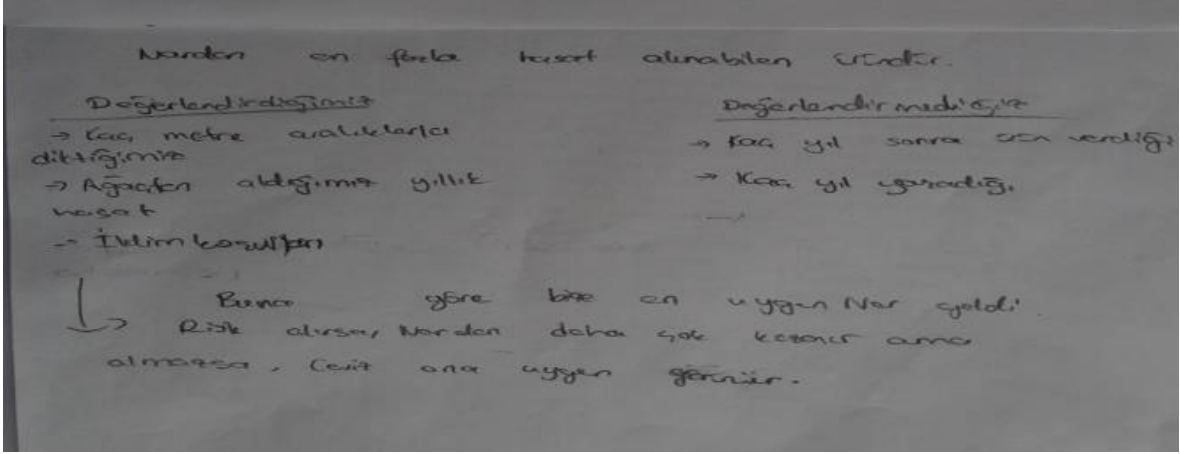 Nardan en fazla hasat alınabilen üründür.
Değerlendirdiğimiz
→ Kaç metre aralıklarla
diktiğimiz
→ Ağaçtan aldığımız yıllık
hasat
→ İklim koşulları
Değerlendirmediğimiz
→ Kaç yıl sonra ürün verdiği
→ Kaç yıl yaşadığı
Buna göre bize en uygun Nar geldi
→ Risk alırsa, Nardan daha çok kazanır ama
almazsa, Ceviz ona uygun görünür.